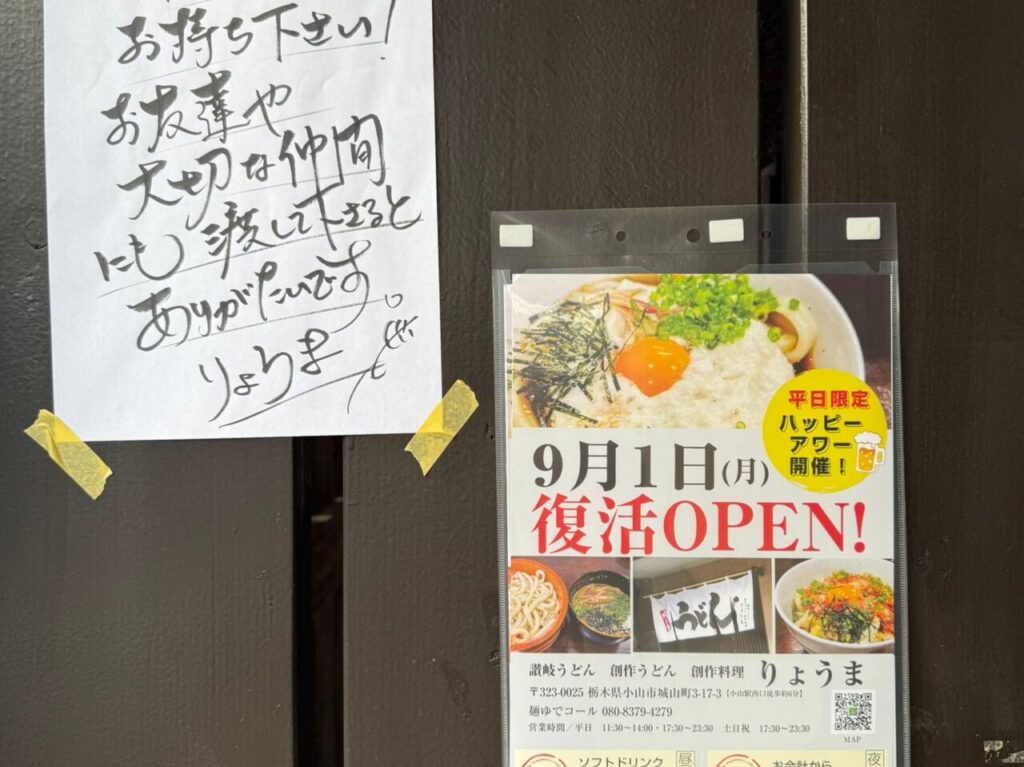 お持ち下さい!
お友達や
大切な仲間
にも渡して下さると
ありがたいです。
りょうま
平日限定
ハッピー
アワー
開催!
9月1日(月)
復活OPEN!
うどん
讃岐うどん 創作うどん 創作料理 りょうま
〒323-0025 栃木県小山市城山町3-17-3【小山駅西口徒歩約6分】
麺ゆでコール 080-8379-4279
営業時間/平日 11:30〜14:00・17:30〜23:30 土日祝 17:30〜23:30
MAP
ソフトドリンク 昼
お会計から 夜